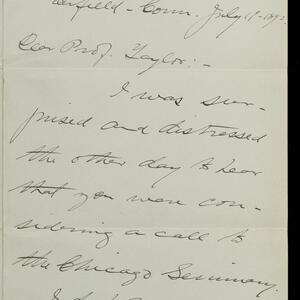 erfield - Conn. July 1892.
Dear Prof. Taylor:-
I was sur-
prised and distressed
the other day to hear
that you were con-
sidering a call to
the Chicago Seminary.